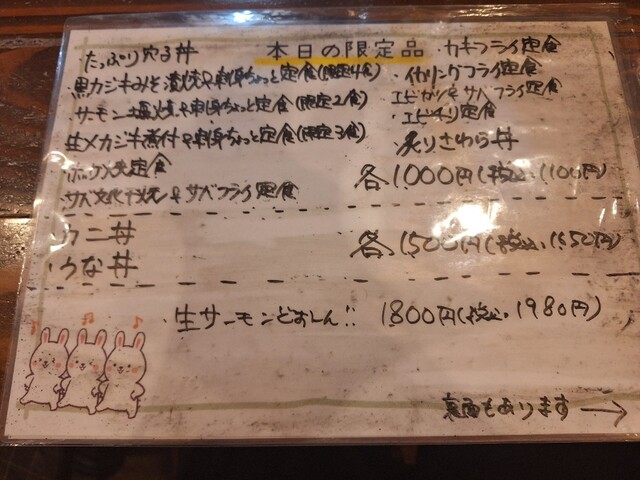 本日の限定品
・たっぷり穴子丼
・黒カジキみそ漬焼&刺身ちょっと定食(限定4食)
・サーモン塩焼&刺身ちょっと定食(限定2食)
・生メカジキ煮付&刺身ちょっと定食(限定3食)
・ホッケ焼定食
・サバ文化干焼&サバフライ定食
・カキフライ定食
・イカリングフライ定食
エビカツ&サバフライ定食
・エビチリ定食
・炙りさわら丼
各1,000円(税込、1,100円)
・ウニ丼
・うな丼
各1,500円(税込、1,650円)
・生サーモンどぉしん!!
1,800円(税込、1,980円)
裏面もあります→